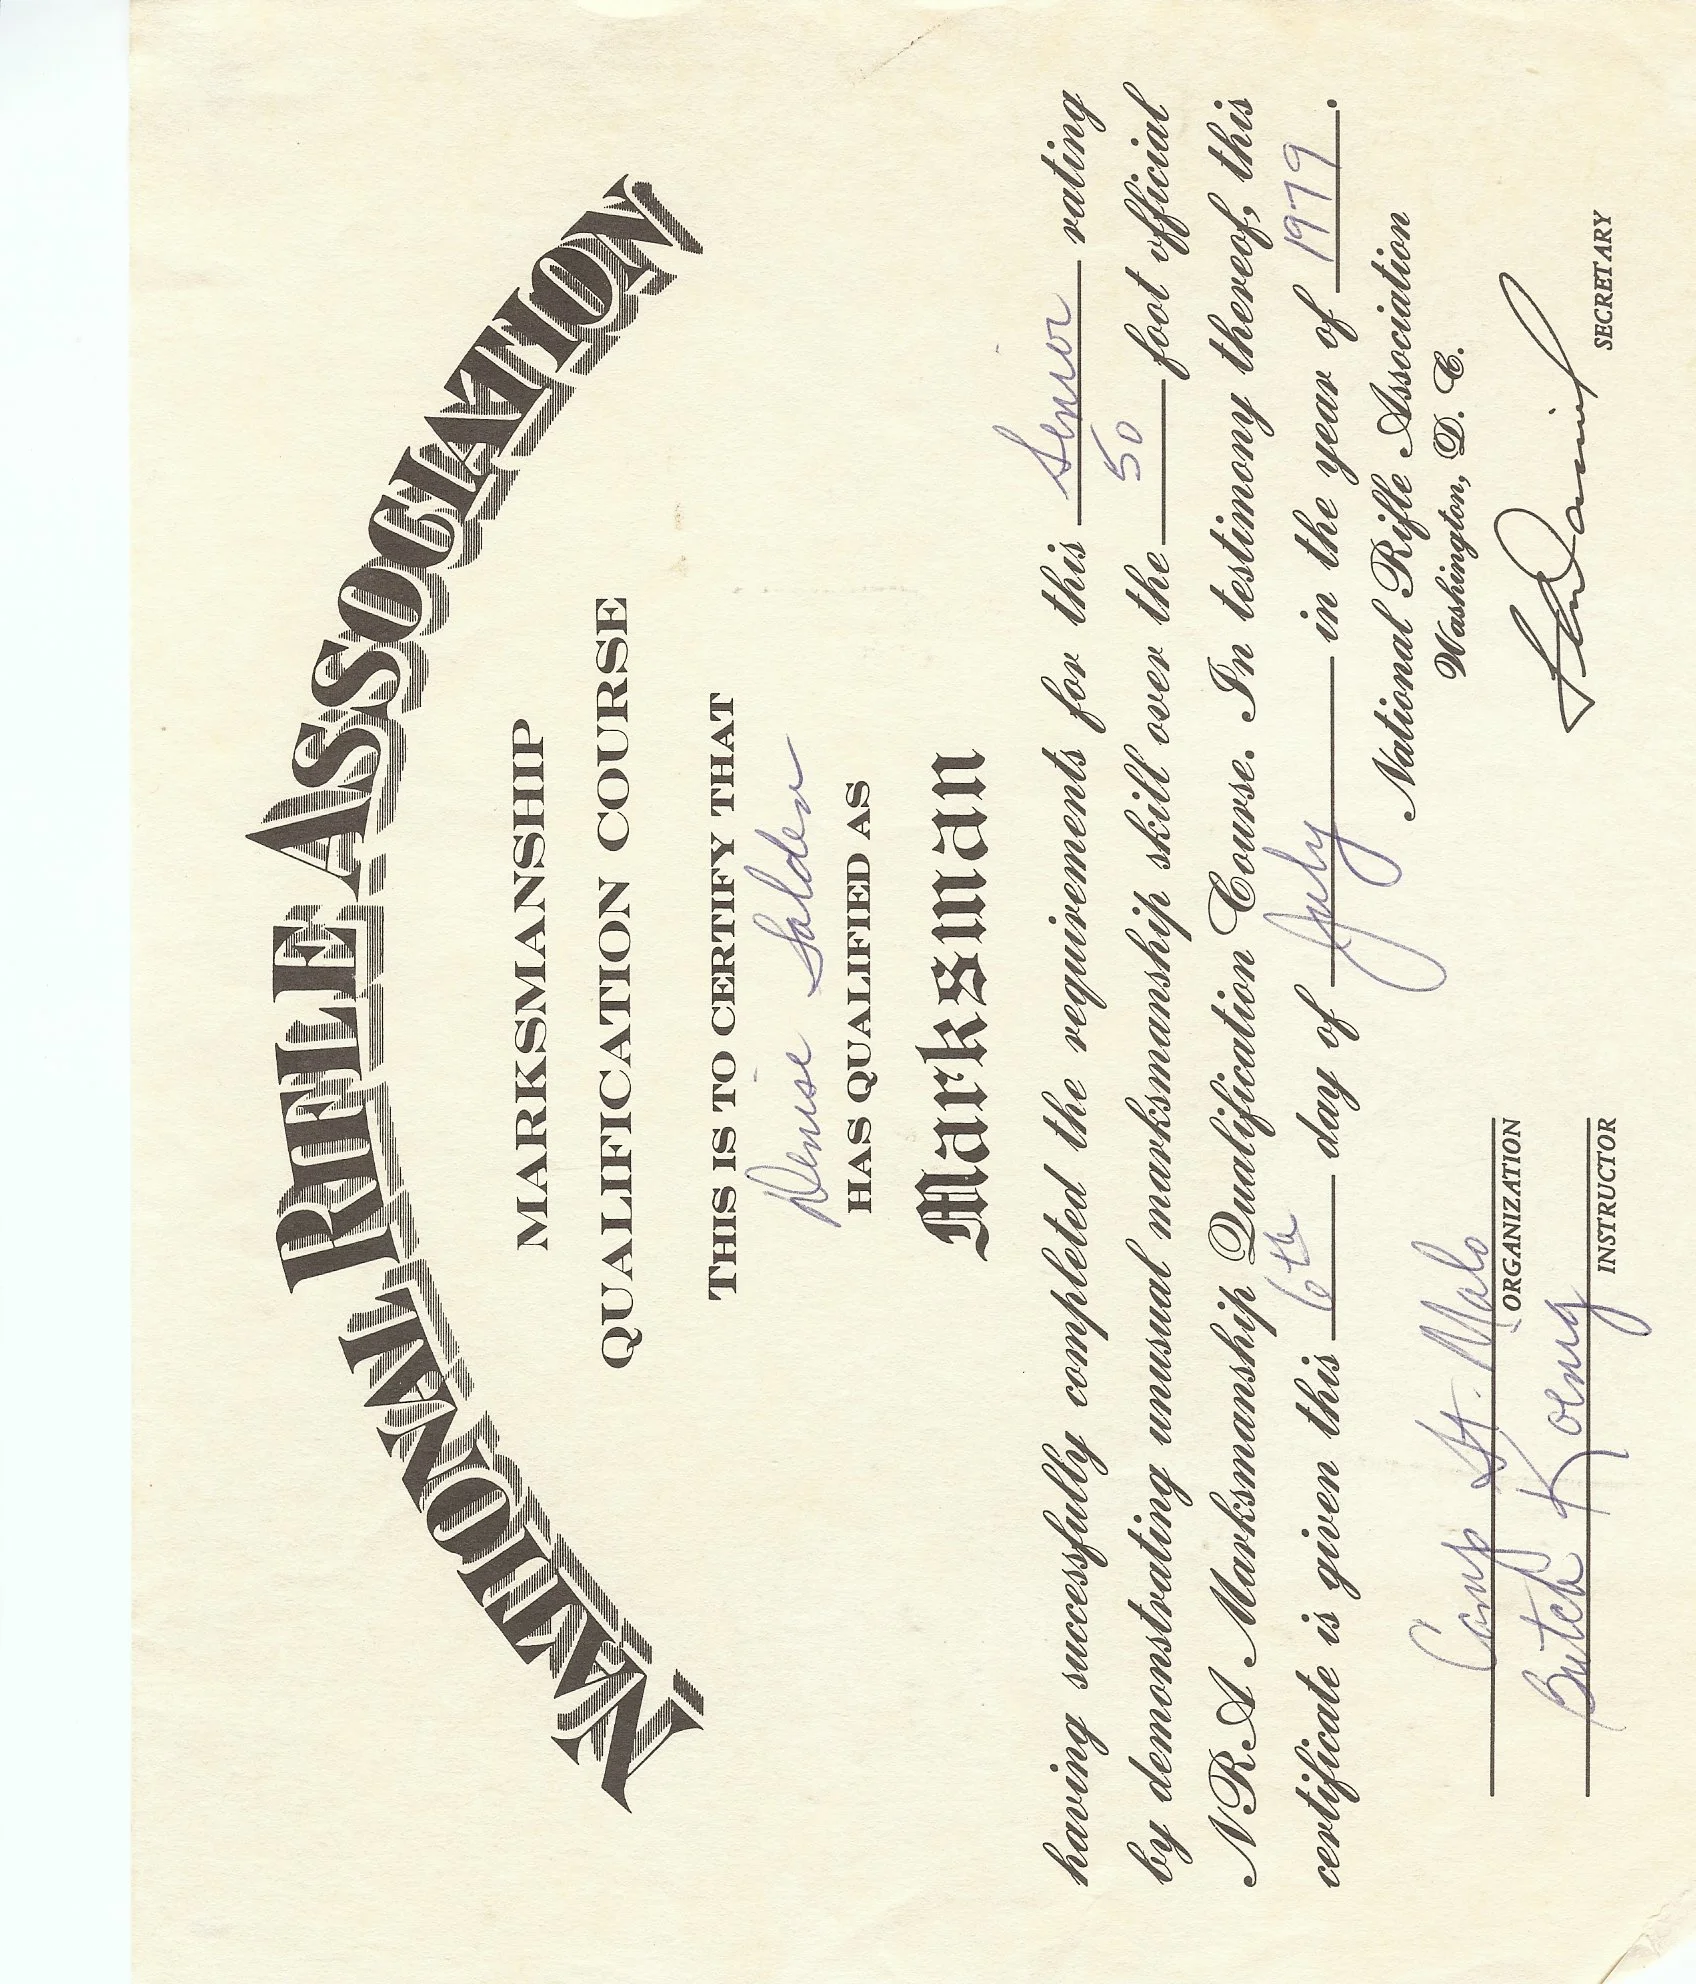 NATIONAL RIFLE ASSOCIATION
MARKSMANSHIP
QUALIFICATION COURSE
THIS IS TO CERTIFY THAT
Denise Salden
HAS QUALIFIED AS
Marksman
having successfully completed the requirements for this Senior rating
by demonstrating unusual marksmanship skill over the 50 foot official
NRA Marksmanship Qualification Course. In testimony thereof, this
certificate is given this 6th day of July in the year of 1979.
National Rifle Association
Washington, D. C.
Camp St. Malo
ORGANIZATION
Butch Koenig
INSTRUCTOR
SECRETARY